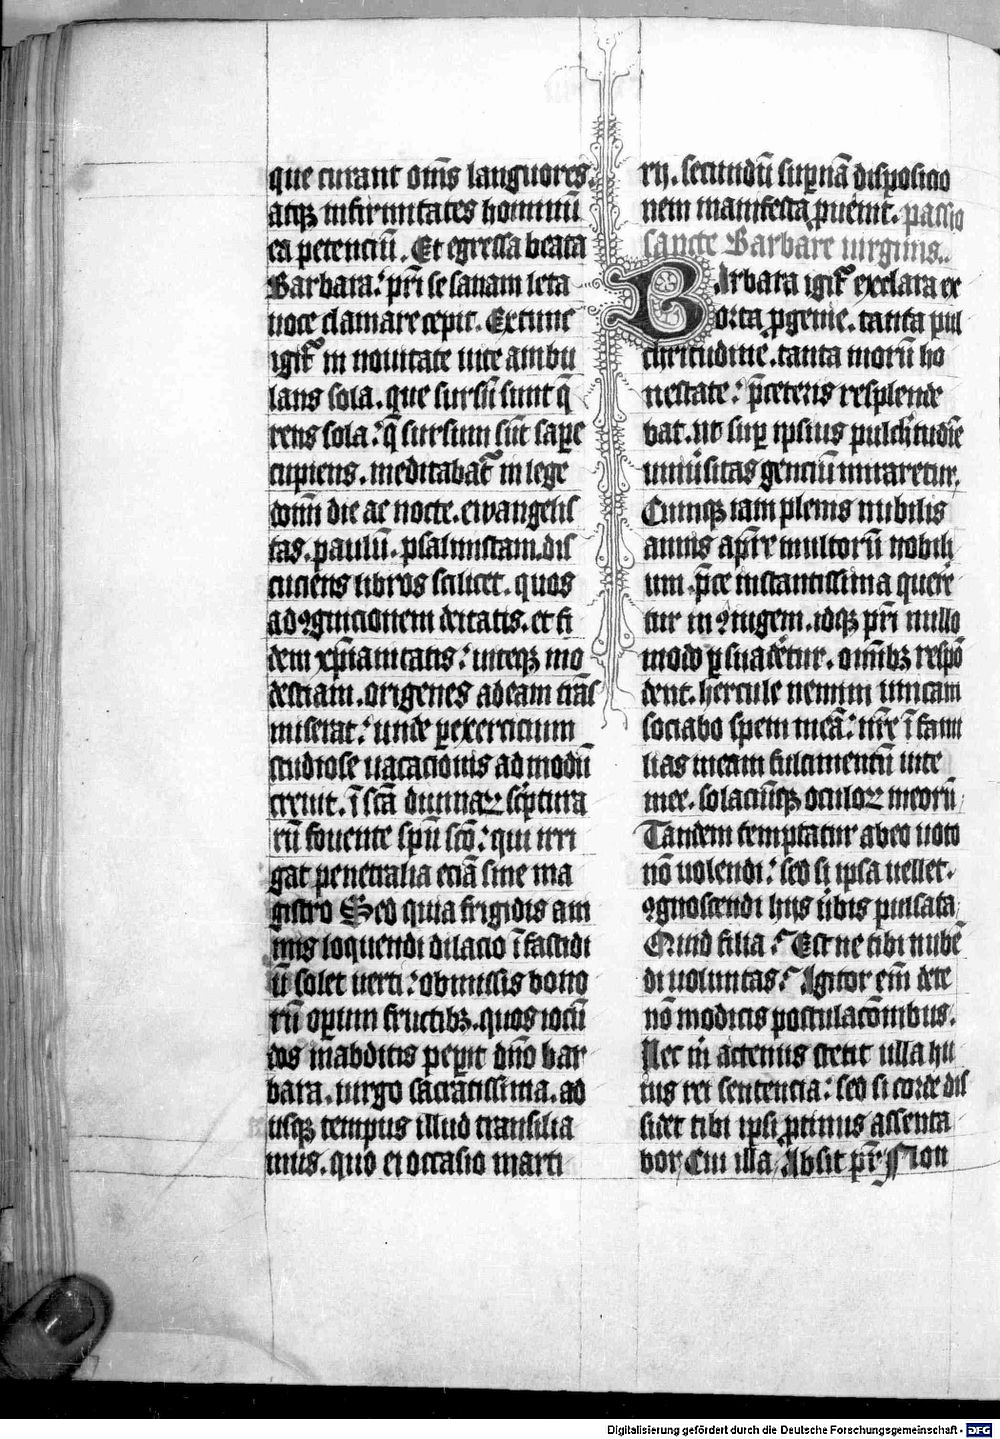 que curant om̄s languores.
atqꝫ infirmitates hominū
ea petenciū. Et egressa beata
Barbara: pr̄i se sanam leta
uoce clamare cepit. Ex tunc
igit᷑ in nouitate uite ambu
lans sola. que sursū sunt q̄
rens sola: q̄ sursum sūt sape
cupiens. meditabat᷑ in lege
dom̄i die ac nocte. ewangelis
tas. paulū. psalmistam. dis
cuciens libros scilicet. quos
ad ꝯgnicionem deitatis. et fi
dem xp̄ianitatis: uiteqꝫ mo
destiam. origenes ad eam trās
miserat: unde ꝑ exercicium
studiose uacacionis admodū
creuit. ī scā diuinaꝝ sc̄ptura
rū fouente sp̄u sc̄o: qui irri
gat penetralia eciā sine ma
gistro Sed quia frigidis ani
mis loquendi dilacio ī fastidi
ū solet uerti: obmissis bono
rū oꝑum fructibꝫ. quos iocū
dos in abditis peꝑit dn̄o bar
bara. uirgo sacratissima. ad
usqꝫ tempus illud transilia
mus. quo ei occasio marti
rij. secundū suꝑnā disposicio
nem manifesta ꝓuenit. passio
sancte Barbare uirginis..
Barbara igit᷑ exclara ex
orta ꝓgenie. tanta pul
chritudine. tanta morū ho
nestate: p̄ceteris resplende
bat. ut suꝑ ipsius pulchritudīe
uniūsitas genciū miraretur.
Cumqꝫ iam plenis nubilis
annis a pr̄e multorū nobili
um. p̄ce instantissima quere
tur in ꝯiugem. idqꝫ pr̄i nullo
modo ꝑsuadetur. om̄ibꝫ respō
dent. hercule nemini unicam
sociabo spem meā: nr̄e ī fami
lias meam fulcimentū uite
mee. solaciūqꝫ oculoꝝ meorū
Tandem temptatur ab eo uoto
nō uolendi: sed si ipsa uellet.
ꝯgnoscendi hijs ūbis pulsata
Quid filia: Est ne tibi nubē
di uoluntas: Agitor em̄ de te
nō modicis postulacōnibus.
Nec in actenus stetit ulla hu
ius rei sentencia: sed si corde dis
sidet tibi ipsi ꝓtinus assenta
bor Cui illa. Absit pr̄ Non